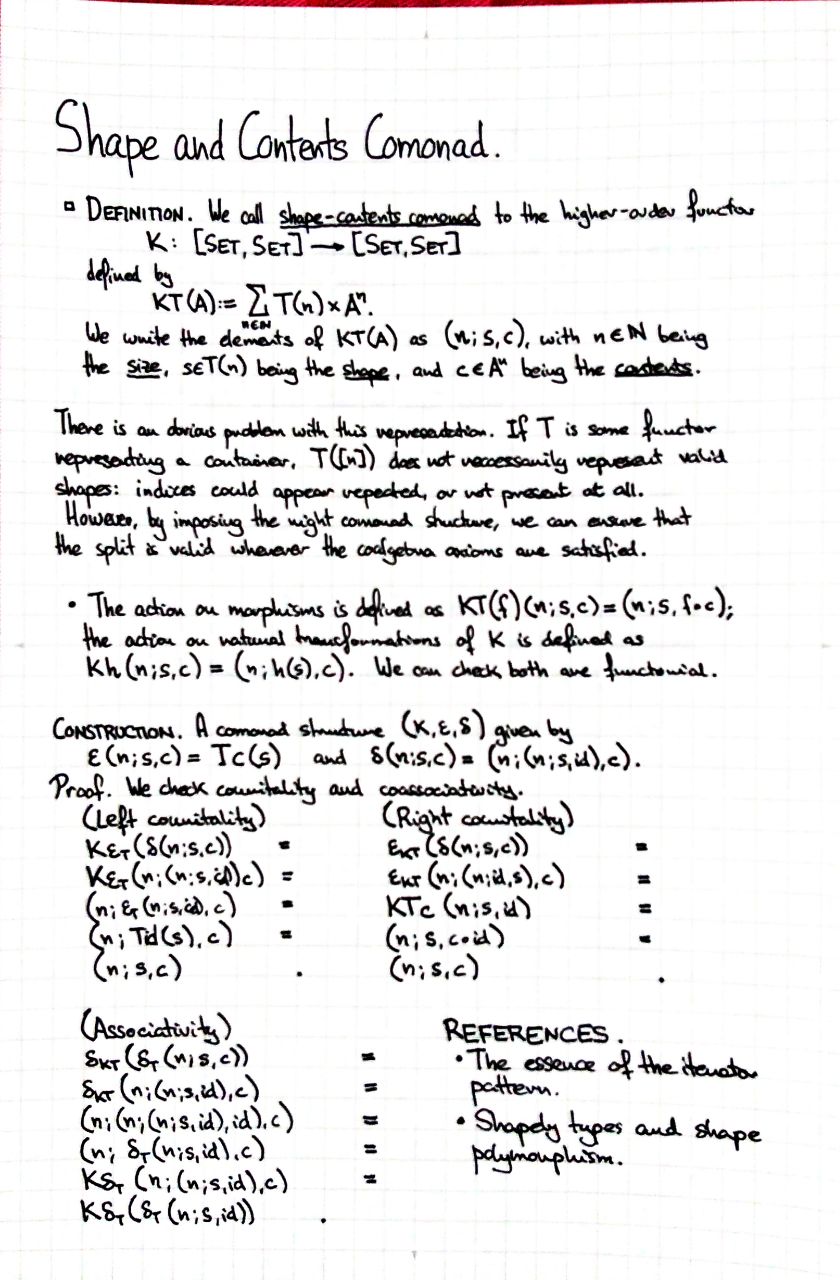 Shape and Contents Comonad.
▫ DEFINITION. We call shape-contents comonad to the higher-order functor
K: [SET, SET] → [SET, SET]
defined by
KT(A) := ∑ T(n) × Aⁿ.
n∈ℕ
We write the elements of KT(A) as (n; s, c), with n∈ℕ being
the size, s∈T(n) being the shape, and c∈Aⁿ being the contents.
There is an obvious problem with this representation. If T is some functor
representing a container, T([n]) does not necessarily represent valid
shapes: indices could appear repeated, or not present at all.
However, by imposing the right comonad structure, we can ensure that
the split is valid whenever the coalgebra axioms are satisfied.
• The action on morphisms is defined as KT(f)(n; s, c) = (n; s, f∘c);
the action on natural transformations of K is defined as
Kh(n; s, c) = (n; h(s), c). We can check both are functorial.
CONSTRUCTION. A comonad structure (K, ε, δ) given by
ε(n; s, c) = Tc(s) and δ(n; s, c) = (n; (n; s, id), c).
Proof. We check counitality and coassociativity.
(Left counitality)
Kε_T(δ(n; s, c)) =
Kε_T(n; (n; s, id), c) =
(n; ε_T(n; s, id), c) =
(n; Tid(s), c) =
(n; s, c) .
(Right counitality)
ε_KT(δ(n; s, c)) =
ε_KT(n; (n; id, s), c) =
KTc(n; s, id) =
(n; s, c∘id) =
(n; s, c) .
(Associativity)
δ_KT(δ_T(n; s, c)) =
δ_KT(n; (n; s, id), c) =
(n; (n; (n; s, id), id), c) =
(n; δ_T(n; s, id), c) =
Kδ_T(n; (n; s, id), c) =
Kδ_T(δ_T(n; s, id)) .
REFERENCES.
• The essence of the iterator
pattern.
• Shapely types and shape
polymorphism.